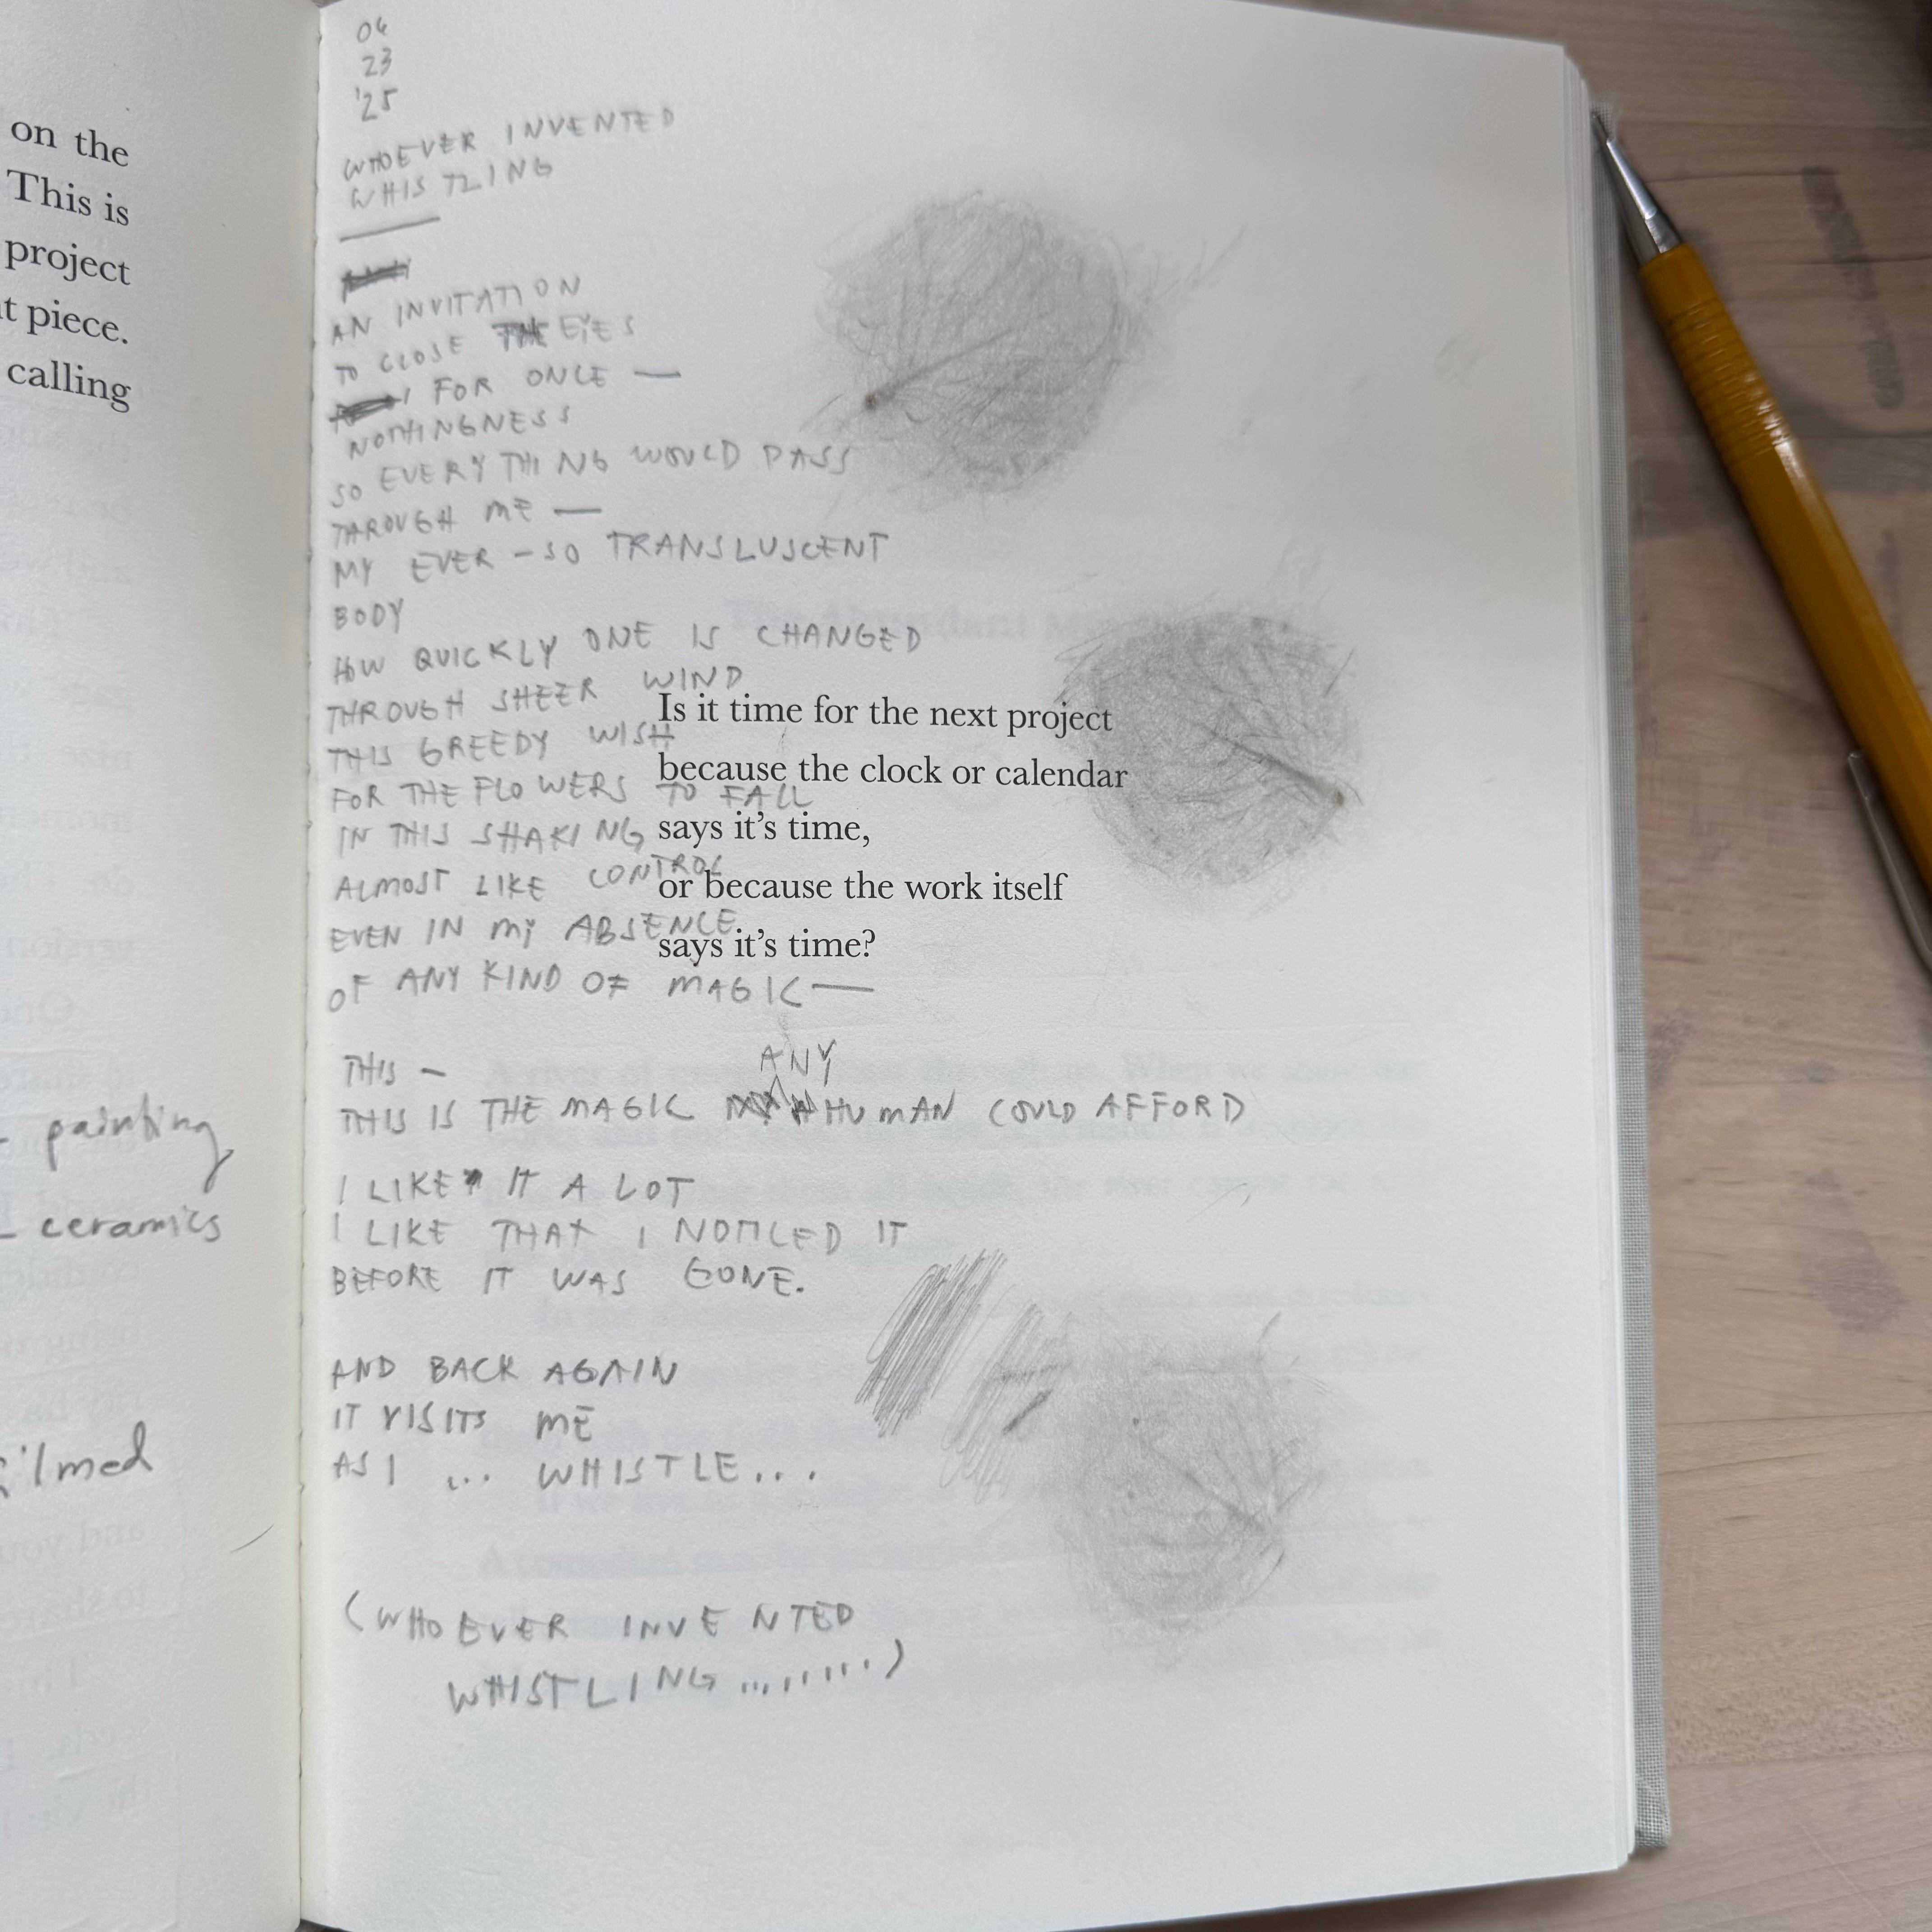 on the
This is
project
piece.
calling
painting,
ceramics
04
23
'25
WHOEVER INVENTED
WHISTLING
AN INVITATION
TO CLOSE EYES
FOR ONCE —
NOTHINGNESS
SO EVERYTHING WOULD PASS
THROUGH ME —
MY EVER-SO TRANSLUSCENT
BODY
HOW QUICKLY ONE IS CHANGED
THROUGH SHEER WIND
THIS GREEDY WISH
FOR THE FLOWERS TO FALL
IN THIS SHAKING
ALMOST LIKE CONTROL
EVEN IN MY ABSENCE
OF ANY KIND OF MAGIC —
THIS —
THIS IS THE MAGIC ANY HUMAN COULD AFFORD
I LIKE IT A LOT
I LIKE THAT I NOTICED IT
BEFORE IT WAS GONE.
AND BACK AGAIN
IT VISITS ME
AS I ... WHISTLE...
(WHOEVER INVENTED
WHISTLING.........)
Is it time for the next project
because the clock or calendar
says it's time,
or because the work itself
says it's time?